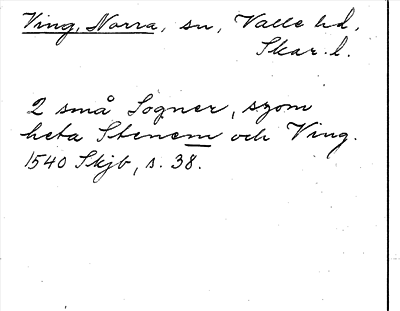 Ving, Norra, sn, Valle hd,
Skar. l.
2 små Sogner, szom
heta Stenem och Ving.
1540 Skjb, s. 38.